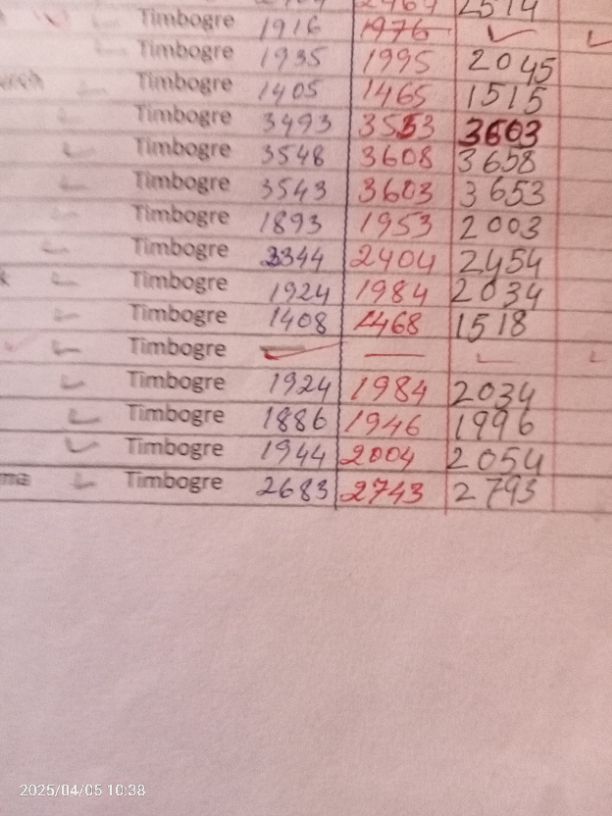 2514
Timbogre 1916 1976 ✓
Timbogre 1935 1995 2045
Timbogre 1405 1465 1515
Timbogre 3493 3553 3603
Timbogre 3548 3608 3658
Timbogre 3543 3603 3653
Timbogre 1893 1953 2003
Timbogre 2344 2404 2454
Timbogre 1924 1984 2034
Timbogre 1408 1468 1518
Timbogre ✓ — ✓
Timbogre 1924 1984 2034
Timbogre 1886 1946 1996
Timbogre 1944 2004 2054
ma Timbogre 2683 2743 2793
2025/04/05 10:38